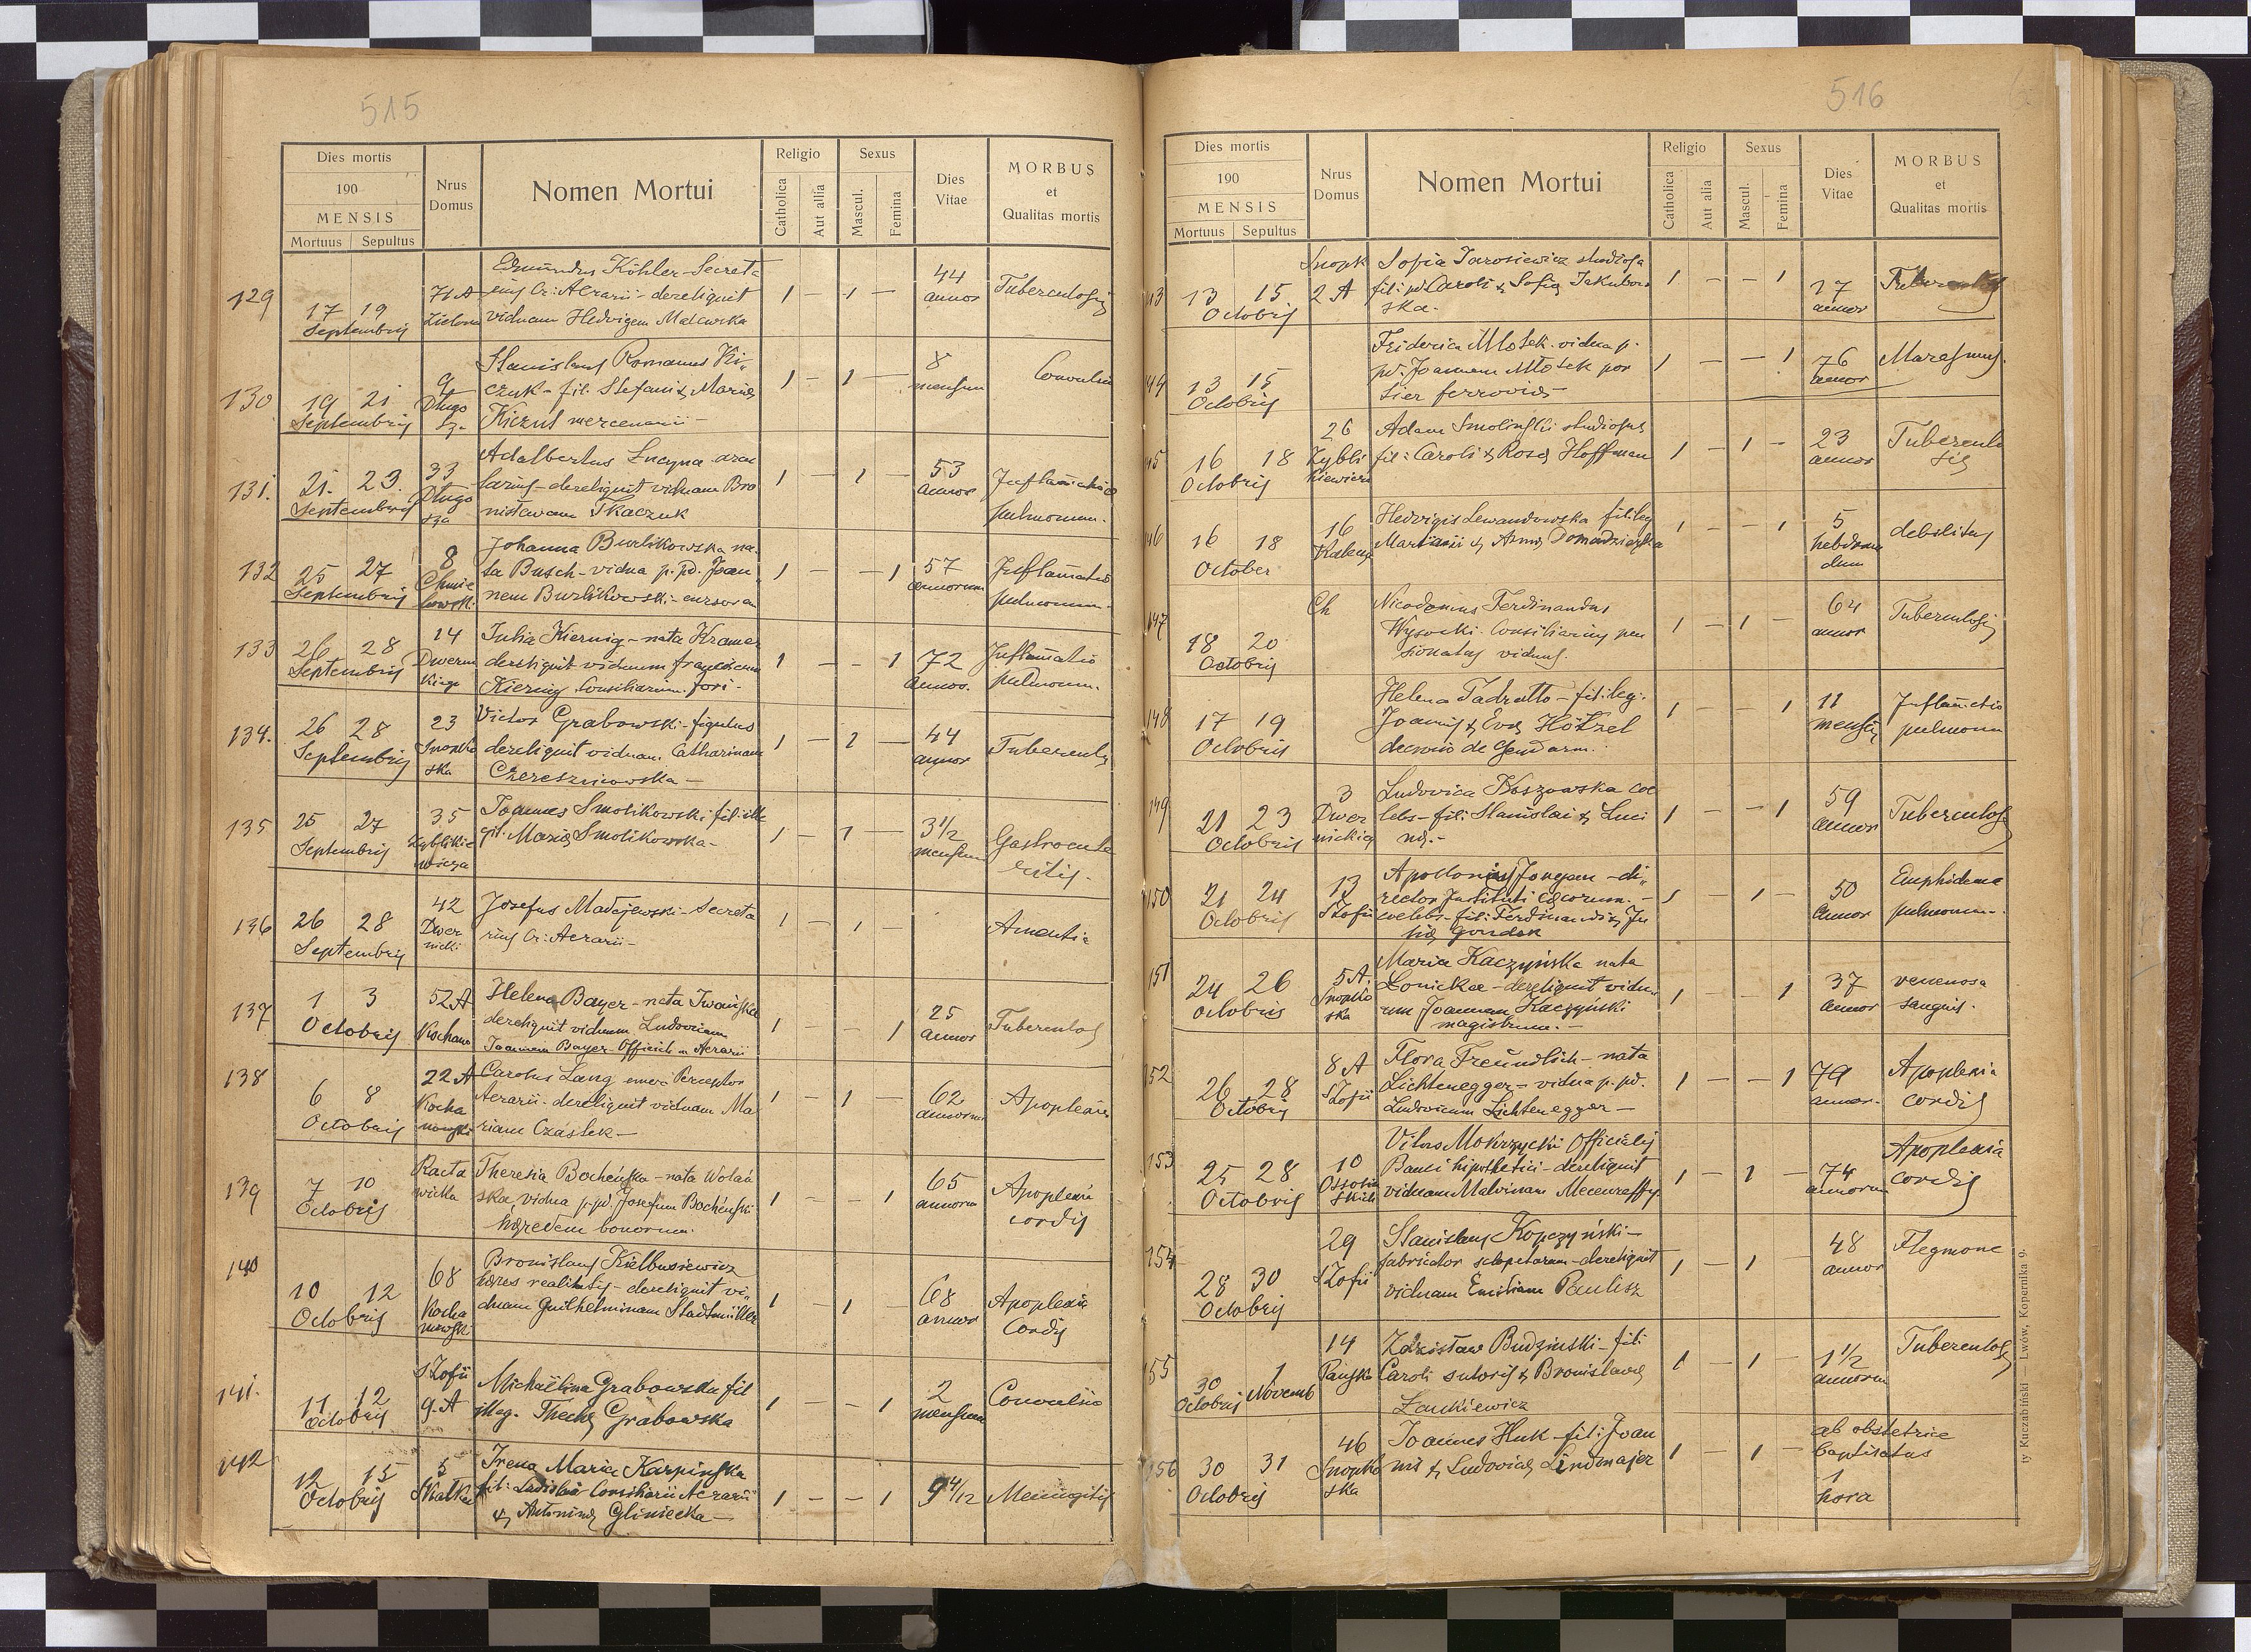 515
Dies mortis
190
MENSIS
Mortuus Sepultus
Nrus
Domus
Nomen Mortui
Religio
Catholica
Aut alia
Sexus
Mascul.
Femina
Dies
Vitae
MORBUS
et
Qualitas mortis
129
17 19
Septembris
71A
Edmundus Köhler - Secret-
Cr: Aerarii - dereliquit
viduam Hedvigem
1 - 1 -
44
annor
Tuberculosis
130
19 21
Septembris
9
Długo
sza
Stanislaus Romanus Ki-
czuk - fil: Stefani & Mariae
mercenarii -
1 - 1 -
8
mensium
Convulsio
131.
21. 23.
Septembris
33
Długo
sza
Adalbertus Lucyna
dereliquit viduam Bro
nislavam Tkaczuk
1 - 1 -
53
annor
Inflamatio
pulmonum.
132
25 27
Septembris
8
Chmie
lowski
Johanna Burlikowska na-
ta Busch - vidua p. pd. Joan
nem Burlikowski - cursorem
1 - - 1
57
annorum
Inflamatio
pulmonum.
133
26 28
Septembris
14
Dwerni
kiego
Julia Kiernig - nata Kramer
dereliquit viduum
Kiernig Consiliarium fori -
1 - - 1
72
annor.
Inflamatio
pulmonum.
134.
26 28
Septembris
23
Snopko
ska
Victor Grabowski - figulus
dereliquit viduam Catharinam
Czereszniowska -
1 - 1 -
44
annor
Tuberculos
135
25 27
Septembris
35
Zyblikie
wicza
Joannes Smolikowski fil: ille
git. Mariae Smolikowska -
1 - 1 -
3 1/2
mensium
Gastroente
ritis -
136
26 28
Septembris
42
Dwer
nicki
Josefus Madejewski - Secreta
rius Cr: Aerarii -
1 - 1 -
Amentia
137
1 3
Octobris
52A
Kochano
Helena Bayer - nata Iwańska
dereliquit viduum Ludovicum
Joannem Bayer - Officialem Aerarii
1 - - 1
25
annor
Tuberculos
138
6 8
Octobris
22A
Kocha
nowski
Carolus Lang emer: Perceptor
Aerarii - dereliquit viduam Ma
riam Cząstek -
1 - 1 -
62
annorum
Apoplexia
139
7 10
Octobris
Racła
wicka
Theresia Bocheńska - nata Wolań
ska, vidua p. pd. Josefum Bocheński
hæredem bonorum.
1 - - 1
65
annorum
Apoplexia
cordis
140
10 12
Octobris
68
Kocha
nowski
Bronislaus Kielbusiewicz
hæres realitatis - dereliquit vi-
duam Guilhelminam Stadtmüller
1 - 1 -
68
annor
Apoplexia
Cordis
141.
11 12
Octobris
S Zofii
9.A
Michaëlina Grabowska fil
illeg. Theclae Grabowska
1 - - 1
2
mensium
Convulsio
142
12 15
Octobris
5
Skałka
Irena Maria Karpińska
fil: Ladislai Consiliarii Aerarii
& Antoninae Gliniecka -
1 - - 1
9 4/12
Meningitis
516
Dies mortis
190
MENSIS
Mortuus Sepultus
Nrus
Domus
Nomen Mortui
Religio
Catholica
Aut alia
Sexus
Mascul.
Femina
Dies
Vitae
MORBUS
et
Qualitas mortis
13 15
Octobris
Snopk
2 A
Sofia Jarosiewicz studiosa
fil: pd. Caroli & Sofiae Jakubow
ska -
1 - - 1
17
annor
13 15
Octobris
Friderica Młotek - vidua p.
pd. Joannem Młotek por
tier ferroviae -
1 - - 1
76
annor
Marasmus.
16 18
Octobris
26
Zybli
kiewicza
Adam Smoliński studiosus
fil: Caroli & Rosae Hoffman
1 - 1 -
23
annor
Tuberculo
sis
16 18
October
16
Hedvigis Lewandowska fil: leg
Mariani & Annae
1 - - 1
5
hebdoma
dum
debilitas
147
18 20
Octobris
Ch
Nicodemus Ferdinandus
Wysocki - Consiliarius pen
sionatus viduus.
1 - 1 -
64
annor
Tuberculosis
148
17 19
Octobris
Helena Tadratto - fil: leg:
Joannis & Evae Hötzel
de Gendarm.
1 - - 1
11
mensium
Inflamatio
pulmonum
149
21 23
Octobris
3
Dwer
nickiego
Ludovica Koszowska coe
lebs - fil: Stanislai & Luci
nae. -
1 - - 1
59
annor
Tuberculos
150
21 24
Octobris
13
S Zofii
Apollonius Jougan - di-
rector Instituti cæcorum -
coelebs - fil: Ferdinandi & Ju
liae Gondek
1 - 1 -
50
annor
Emphidema
pulmonum.
151
24 26
Octobris
5 A.
Snopko
ska
Maria Kaczyńska nata
Łonickae - dereliquit vidu-
um Joannem Kaczyński
magistrum. -
1 - - 1
37
annor
venenosa
sanguis.
152
26 28
Octobris
8 A
S Zofii
Flora Freündlich - nata
Lichtenegger - vidua p. pd.
Ludovicum Lichtenegger -
1 - - 1
79
annor.
Apoplexia
cordis
153
25 28
Octobris
10
Ossoliń
skich
Vitus Mokrzycki Officialis
Banci hipothetici - dereliquit
viduam Malvinam
1 - 1 -
74
annorum
Apoplexia
cordis
154
28 30
Octobris
29
S Zofii
Stanislaus Kopczyński -
fabricator sclopetarum - dereliquit
viduam Emiliam Paulisz
1 - 1 -
48
annor
Flegmone
155
30 1
Octobris Novemb
14
Pańska
Zdzisław Budziński - fil:
Caroli sutoris & Bronislavae
Lankiewicz
1 - 1 -
1 1/2
annorum
Tuberculos
156
30 31
Octobris
46
Snopko
ska
Joannes Huk - fil: Joan
nis & Ludovicae Lindmajer
1 - 1 -
ab obstetrice
baptisatus
1
hora
ty Kuczabiński Lwów, Kopernika 9.